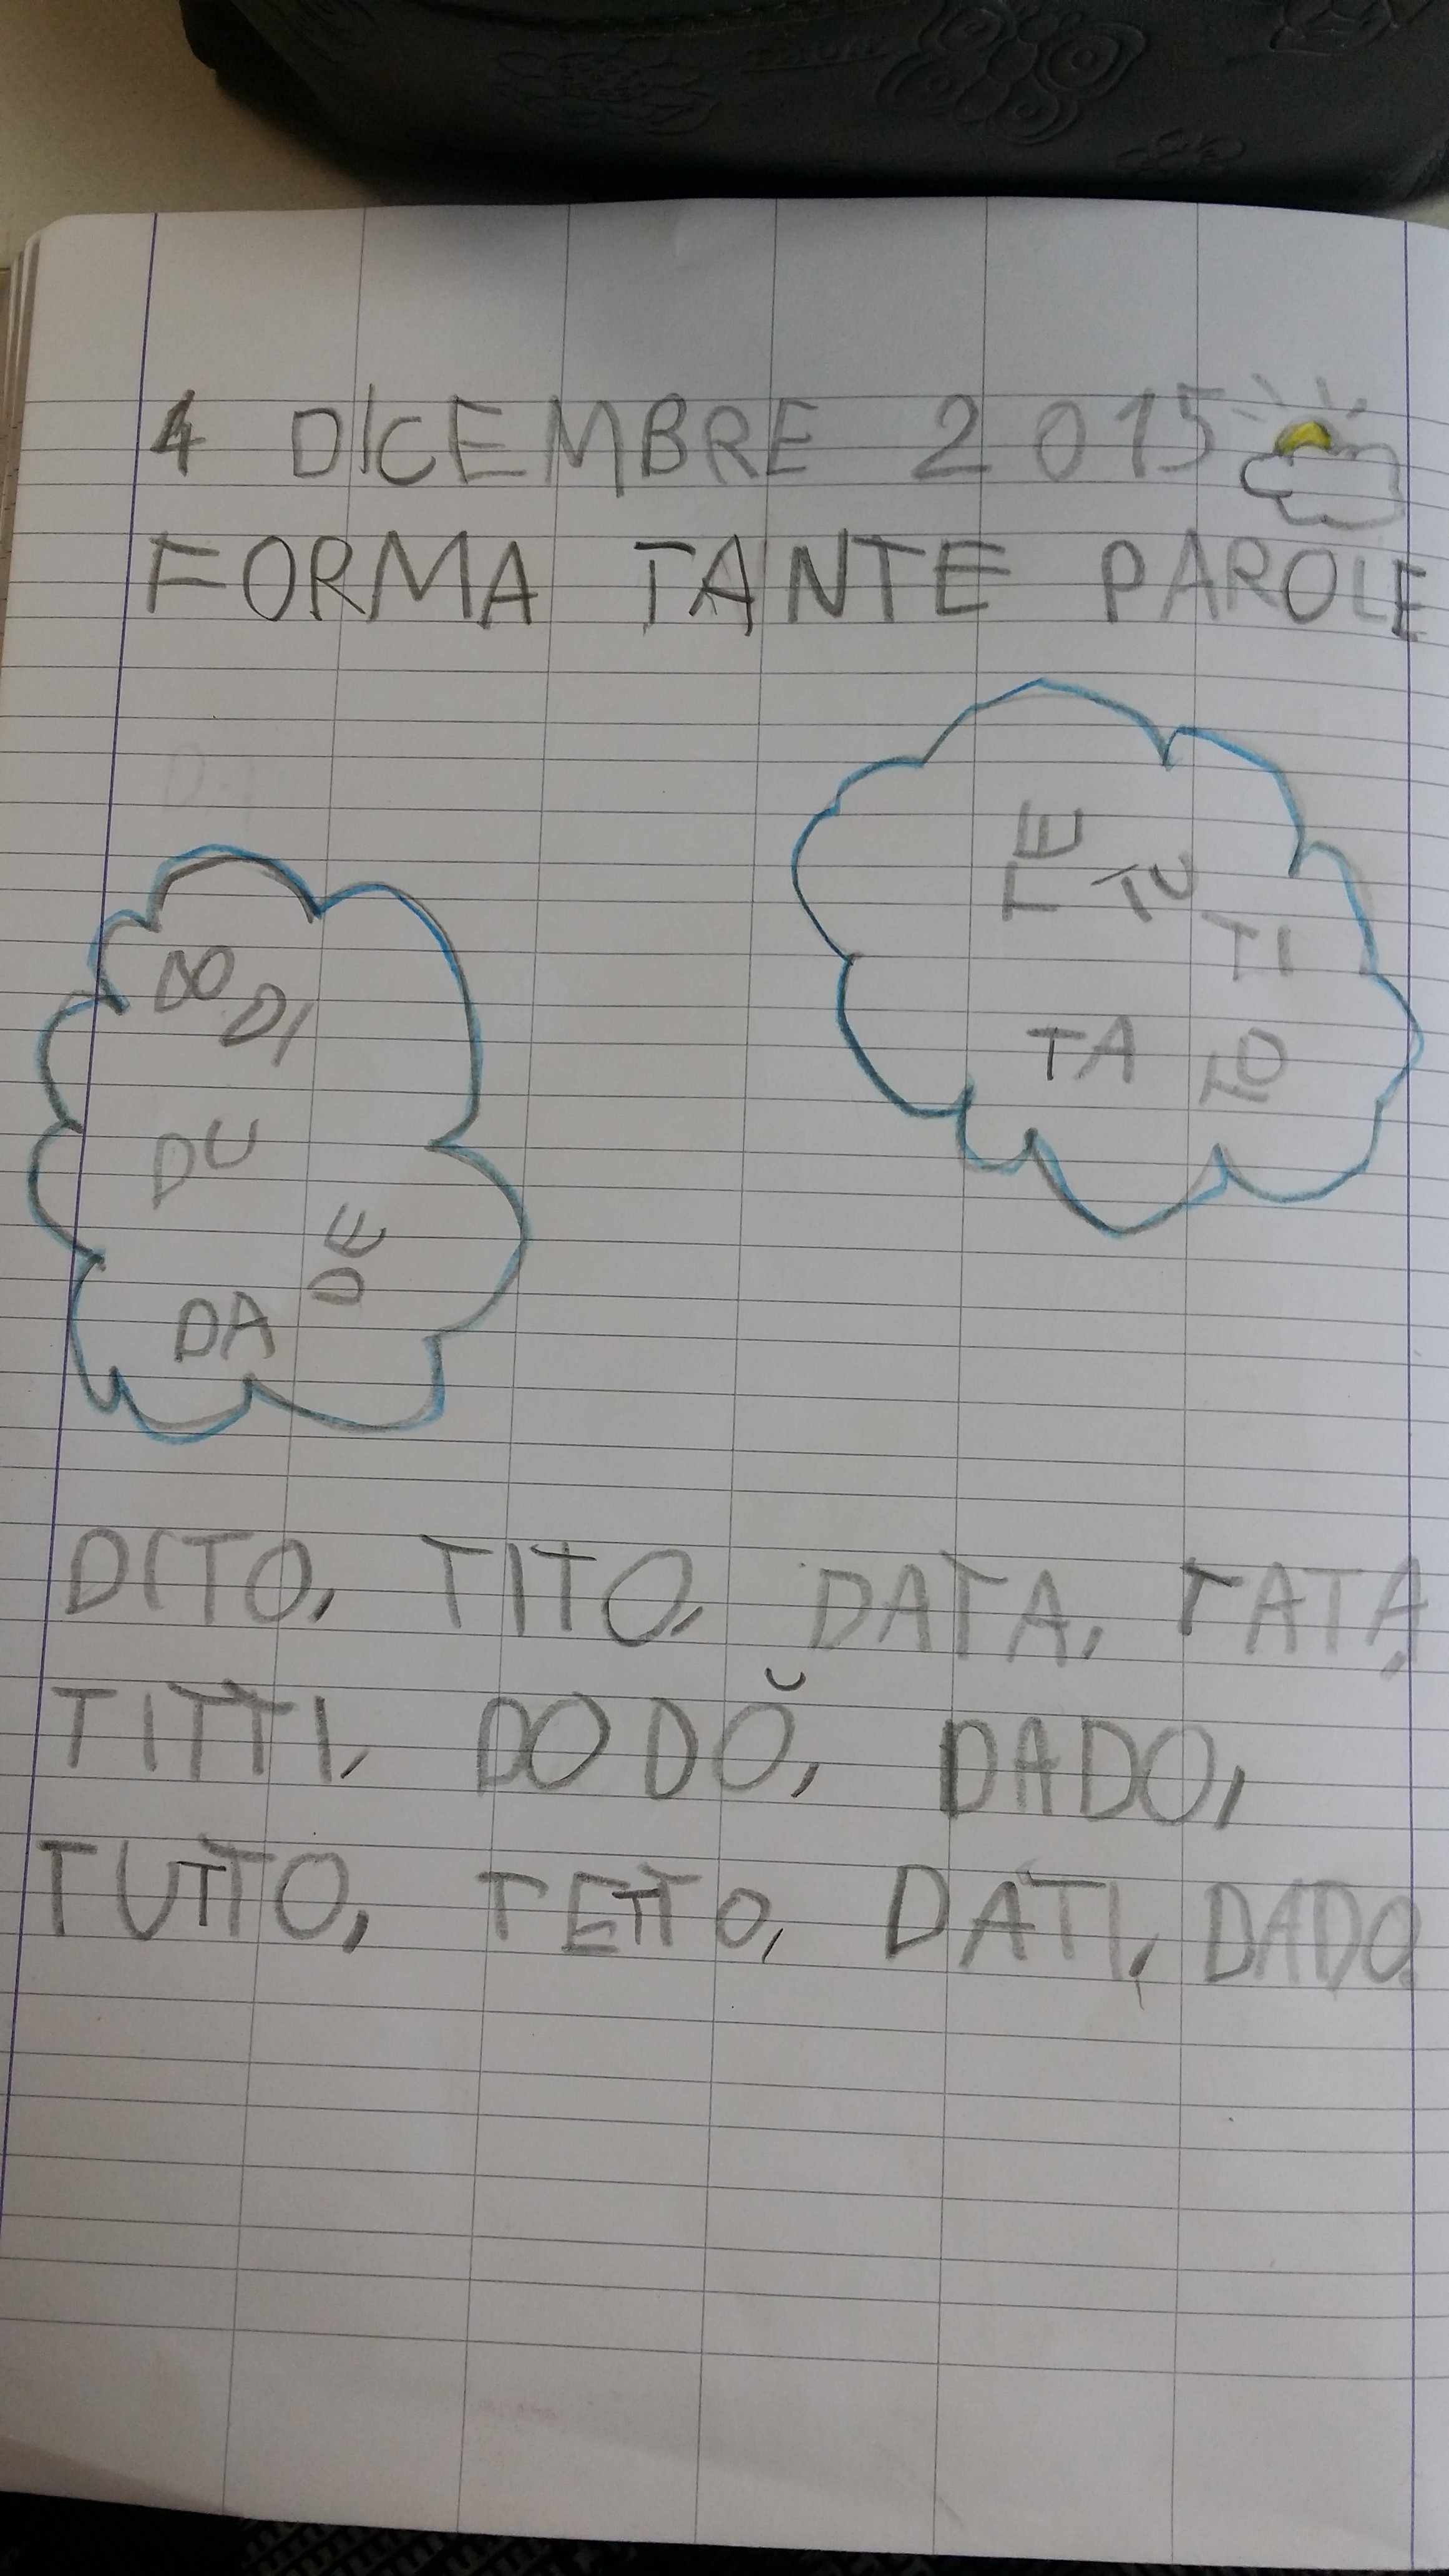 4 DICEMBRE 2015
FORMA TANTE PAROLE
TE
TU
TI
TA
TO
DO
DI
DU
DE
DA
DITO, TITO, DATA, TATA,
TITTI, DODŎ, DADO,
TUTTO, TETTO, DATI, DADO.